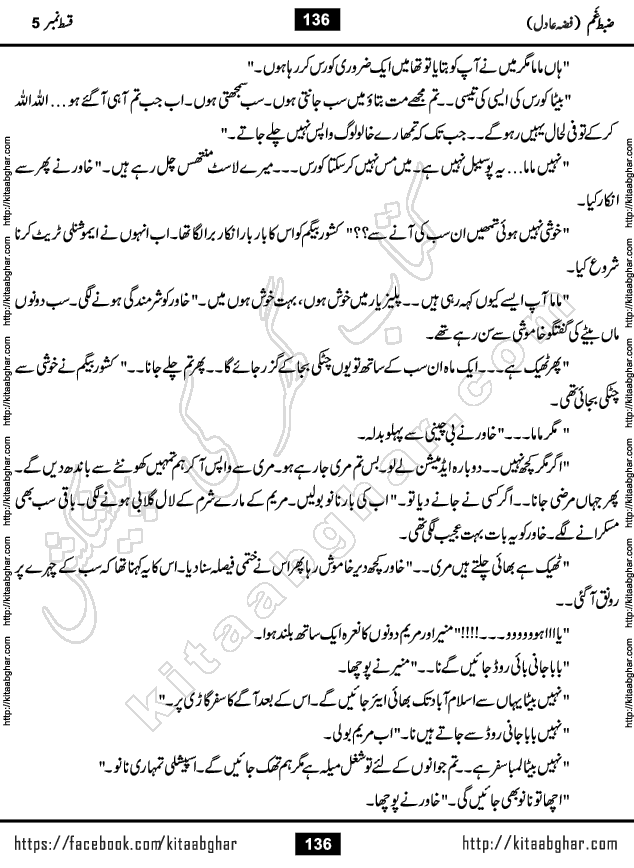 ضبطِ غم (فضہ عادل)
136
قسط نمبر 5
"ہاں ماما مگر میں نے آپ کو بتایا تو تھا میں ایک ضروری کورس کر رہا ہوں۔"
"بیٹا کورس کی ایسی کی تیسی۔۔ تم مجھے مت بتاؤ میں سب جانتی ہوں۔ سب سمجھتی ہوں۔ اب جب تم آ ہی آ گئے ہو... اللہ اللہ
کر کے تو فی الحال یہیں رہو گے۔۔ جب تک کہ تمھارے خالو لوگ واپس نہیں چلے جاتے۔"
"نہیں ماما... یہ پوسیبل نہیں ہے۔ میں مس نہیں کر سکتا کورس۔۔۔ میرے لاسٹ منتھس چل رہے ہیں۔" خاور نے پھر سے
انکار کیا۔
"خوشی نہیں ہوئی تمھیں ان سب کی آنے سے؟؟" کشور بیگم کو اس کا بار بار انکار برا لگا تھا۔ اب انہوں نے ایموشنلی ٹریٹ کرنا
شروع کیا۔
"ماما آپ ایسے کیوں کہہ رہی ہیں۔۔ پلیز یار میں خوش ہوں، بہت خوش ہوں میں۔" خاور کو شرمندگی ہونے لگی۔ سب دونوں
ماں بیٹے کی گفتگو خاموشی سے سن رہے تھے۔
"پھر ٹھیک ہے۔۔۔ ایک ماہ ان سب کے ساتھ تو یوں چٹکی بجا کے گزر جائے گا۔۔ پھر تم چلے جانا۔۔" کشور بیگم نے خوشی سے
چٹکی بجائی تھی۔
"مگر ماما۔۔۔" خاور نے بی چینی سے پہلو بدلہ۔
"اگر مگر کچھ نہیں۔۔ دوبارہ ایڈمیشن لے لو۔ بس تم مری جا رہے ہو۔ مری سے واپس آ کر ہم تمہیں کھونٹے سے باندھ دیں گے۔
پھر جہاں مرضی جانا۔۔ اگر کسی نے جانے دیا تو۔" اب کی بار نانو بولیں۔ مریم کے مارے شرم کے لال گلابی ہونے لگی۔ باقی سب بھی
مسکرانے لگے۔ خاور کو یہ بات بہت عجیب لگی تھی۔
"ٹھیک ہے بھائی چلتے ہیں مری۔۔" خاور کچھ دیر خاموش رہا پھر اس نے حتمی فیصلہ سنا دیا۔ اس کا یہ کہنا تھا کہ سب کے چہرے پر
رونق آ گئی۔۔
"یاااا ہوووووو۔۔۔!!!!" منیر اور مریم دونوں کا نعرہ ایک ساتھ بلند ہوا۔
"بابا جانی بائی روڈ جائیں گے نا۔۔" منیر نے پوچھا۔
"نہیں بیٹا یہاں سے اسلام آباد تک بھائی ایئر جائیں گے۔ اس کے بعد آگے کا سفر گاڑی پر۔"
"نہیں بابا جانی روڈ سے جاتے ہیں نا۔" اب مریم بولی۔
"نہیں بیٹا لمبا سفر ہے۔۔ تم جوانوں کے لئے تو شغل میلہ ہے مگر ہم تھک جائیں گے۔ اسپیشلی تمہاری نانو۔"
"اچھا تو نانو بھی جائیں گی۔" خاور نے پوچھا۔
کتاب گھر کی پیشکش
kitaabghar.com
http://kitaabghar.com http://kitaabghar.com http://kitaabghar.com http://kitaabghar.com http://kitaabghar.com http://kitaabghar.com
http://kitaabghar.com http://kitaabghar.com http://kitaabghar.com http://kitaabghar.com http://kitaabghar.com http://kitaabghar.com
https://facebook.com/kitaabghar
136
http://kitaabghar.com